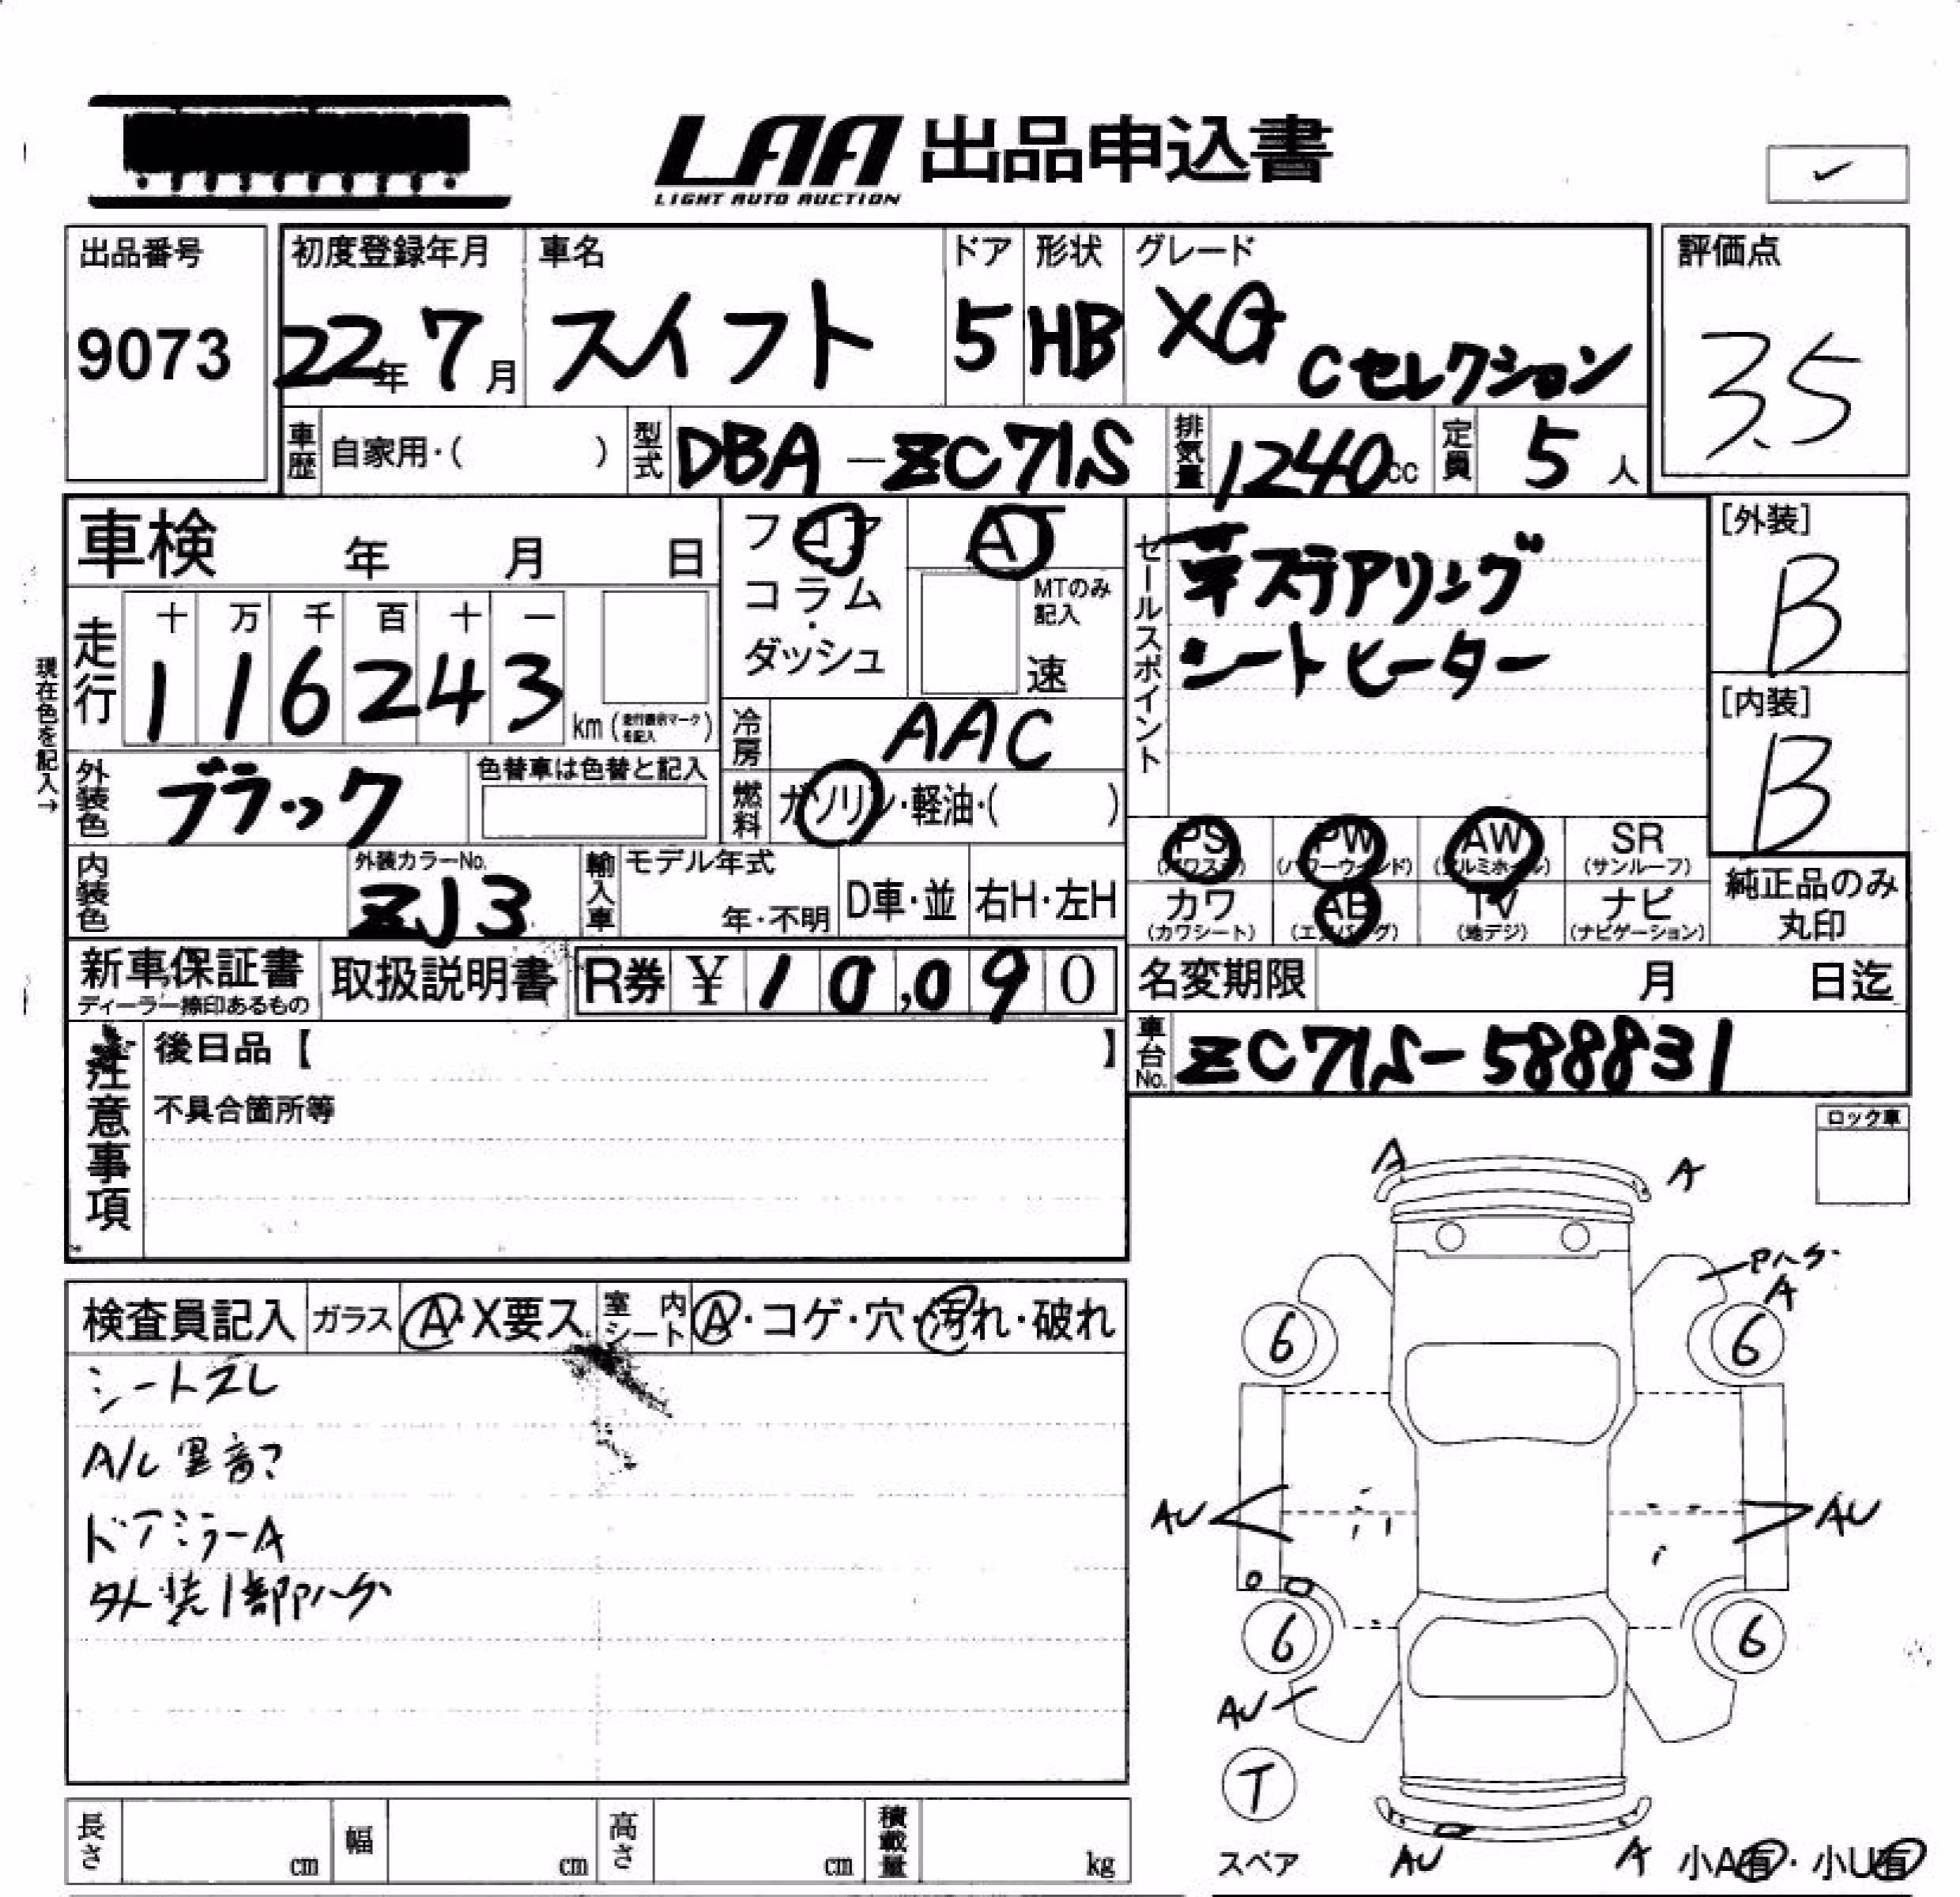 LAA 出品申込書
LIGHT AUTO AUCTION
✓
出品番号 初度登録年月 車名 ドア 形状 グレード 評価点
9073 22年 7月 スイフト 5 HB XG Cセレクション 3.5
車歴 自家用・( ) 型式 DBA-ZC71S 排気量 1240cc 定員 5人
車検 年 月 日 フロア AT セールスポイント 革ステアリング [外装]
コラム・ダッシュ MTのみ記入 速 シートヒーター B
走行 十 万 千 百 十 一
1 1 6 2 4 3 km (走行表示マークを記入)
現在色を記入→
冷房 AAC [内装]
B
外装色 ブラック 色替車は色替と記入 燃料 ガソリン・軽油・( )
PS (パワステ) PW (パワーウィンド) AW (アルミホイール) SR (サンルーフ)
内装色 外装カラーNo. ZJ3 輸入車 モデル年式 年・不明 D車・並 右H・左H
カワ (カワシート) AB (エアバッグ) TV (地デジ) ナビ (ナビゲーション) 純正品のみ丸印
新車保証書 ディーラー捺印あるもの 取扱説明書 R券 ¥ 10,090 名変期限 月 日迄
車台No. ZC71S-588831
注意事項 後日品【 】
不具合箇所等
ロック車
A A
Pハゲ
A
6 6
検査員記入 ガラス A・X要ス 室内シート A・コゲ・穴・汚れ・破れ
シートスレ
A/C 異音?
ドアミラーA
外装1部Pハゲ
AU AU
6 6
AU
T
スペア AU A 小A有・小U有
長さ cm 幅 cm 高さ cm 積載量 kg